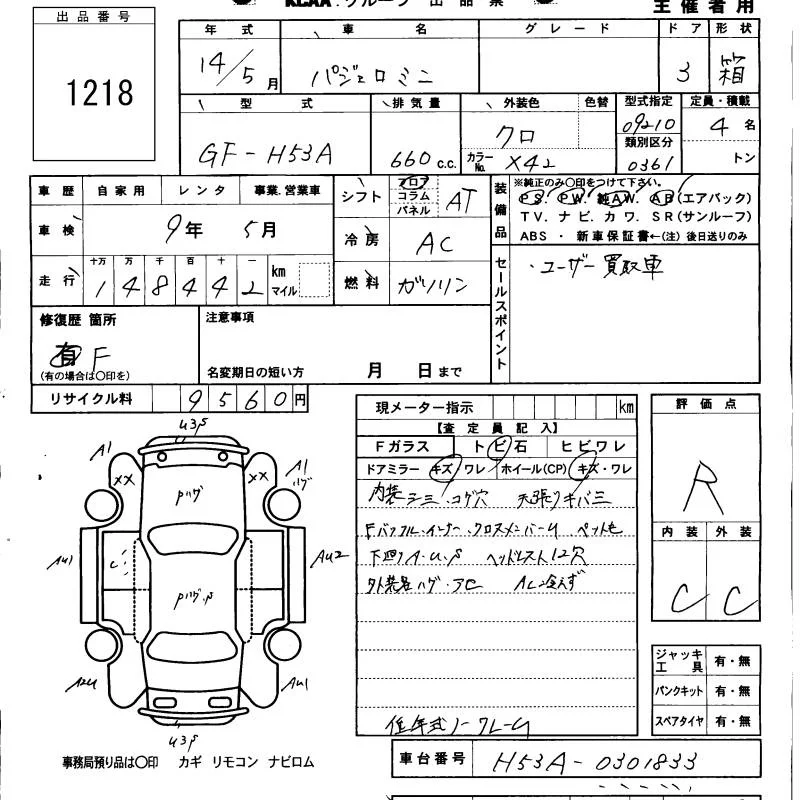 出品番号
1218
KCAA.グループ 出品票
主催者用
年式 車名 グレード ドア 形状
14/5月 パジェロミニ 3 箱
型式 排気量 外装色 色替 型式指定 定員・積載
GF-H53A 660c.c. クロ 09210 4名
カラーNo. X42 類別区分 0361 トン
車歴 自家用 レンタ 事業.営業車
車検 9年 5月
十万 万 千 百 十 一
走行 148442 km マイル
シフト フロア コラム パネル AT
冷房 AC
燃料 ガソリン
装備品
※純正のみ〇印をつけて下さい。
PS. PW. 純AW. AB(エアバック)
TV. ナビ. カワ. SR(サンルーフ)
ABS・新車保証書←(注)後日送りのみ
セールスポイント
・ユーザー買取車
修復歴 箇所
有 F
(有の場合は〇印を)
注意事項
名変期日の短い方 月 日まで
リサイクル料 9560円
現メーター指示 km
【査定員記入】
Fガラス トビ石 ヒビワレ
ドアミラー キズ/ワレ ホイール(CP) キズ・ワレ
内装シミ・コゲ穴 天張りキバミ
Fバッフル・インナー・クロスメンバーU ペット毛
下廻りA.U.S ヘッドレスト12穴
外装色ハゲ・AC AC冷えず
低年式ノークレーム
評価点
R
内装 外装
C C
ジャッキ 工具 有・無
パンクキット 有・無
スペアタイヤ 有・無
U3S
A1 XX XX A1 ハゲ
Pハゲ
AU1 AU2
Pハゲ.S
A2U AU1
U3S
事務局預り品は〇印 カギ リモコン ナビロム
車台番号 H53A-0301833